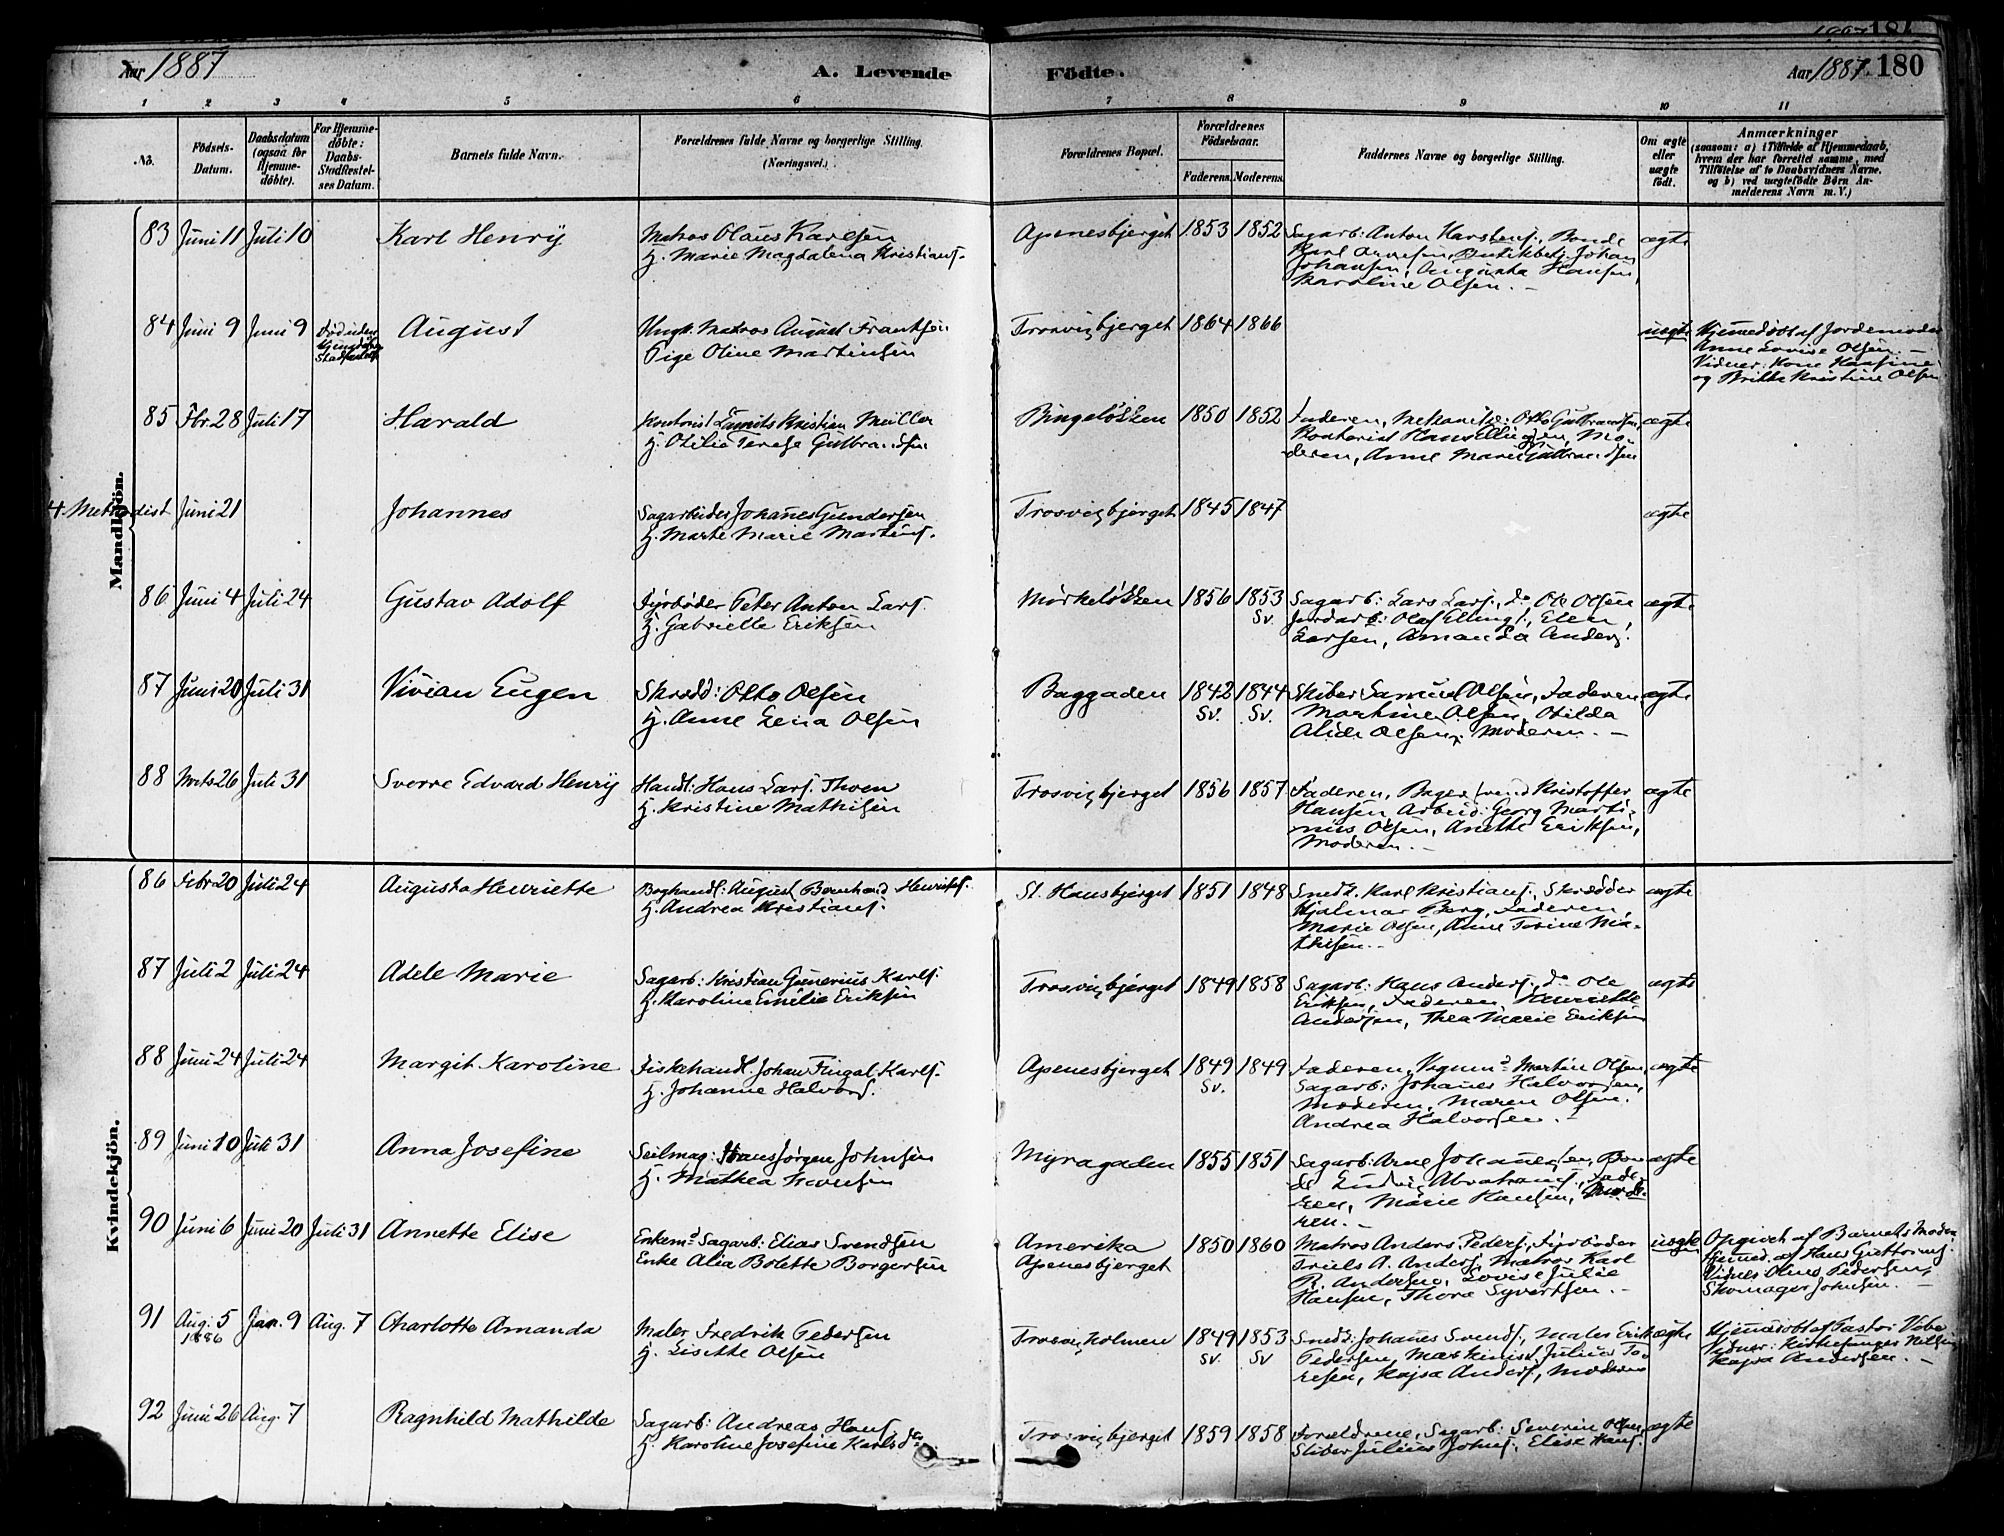 Aar 1887
A. Levende Födte.
Aar 1887. 180
1 2 3 4 5 6 7 8 9 10 11
No.
Födsels-Datum.
Daabsdatum (ogsaa for Hjemme-döbte).
For Hjemme-döbte: Daabs-Stadfæstel-ses Datum.
Barnets fulde Navn.
Forældrenes fulde Navne og borgerlige Stilling. (Næringsvei.)
Forældrenes Bopæl.
Forældrenes Födselsaar.
Faderens. Moderens.
Faddernes Navne og borgerlige Stilling.
Om ægte eller uægte födt.
Anmærkninger
(saasom: a) i Tilfælde af Hjemmedaab, hvem der har forrettet samme, med Tilföielse af to Daabsvidners Navne, og b) ved uægtefödte Börn An-melderens Navn m. V.)
Mandkjön.
83 Juni 11 Juli 10 Karl Henry Matros Olaus Karlsen
H. Marie Magdalena Kristians.
Apenesbjerget 1853 1852 Sagarb: Anton Karstens., Bonde
Karl Johan
Johansen, Augusta Hansen,
Karoline Olsen. ægte
84 Juni 9 Juni 9 August Ungk. Matros August Frantsen
Pige Oline Martinsen
Trosvigbjerget 1864 1866 uægte Hjemmedöbt af Jordemoder
Anne Lovise Olsen.
Vidner: Kone Hansine
og Kristine Olsen
85 Fbr. 28 Juli 17 Harald Kontorist Laurits Kristian Müller
H. Otilie Terese Gulbrandsen
Bingeløkken 1850 1852 Faderen, Mekaniker Otto Gulbrandsen,
Kontorist Hans Ellingsen, Mo-
deren, Anne Marie Gulbrandsen ægte
4 Methodist Juni 21 Johannes Sagarbeider Johannes Gundersen
H. Marte Marie Martins.
Trosvigbjerget 1845 1847 ægte
86 Juni 4 Juli 24 Gustav Adolf Fyrbøder Peter Anton Lars.
H. Gabrielle Eriksen
Mørkeløkken 1856 1853 Sv. Sagarb: Lars Lars., do Ole Olsen
Jordarb: Olaf Ellings., Elen
Larsen, Amanda Anders. ægte
87 Juni 20 Juli 31 Vivian Eugen Skrædd: Otto Olsen
H. Anne Lena Olsen
Baggaden 1842 Sv. 1844 Sv. Skiber Samuel Olsen, Faderen
Martine Olsen, Otilda
Alida Olsen, Moderen. ægte
88 Marts 26 Juli 31 Sverre Edvard Henry Handl: Hans Lars. Thoen
H. Kristine Mathisen
Trosvigbjerget 1856 1857 Faderen, Bagersvend Kristoffer
Hansen Arbeid. Georg Marti-
nius Olsen, Anette Eriksen,
Moderen. ægte
Kvindekjön.
86 Febr. 20 Juli 24 Augusta Henriette Boghandl: August Bernhard Henriks.
H. Andrea Kristians.
St. Hansbjerget 1851 1848 Snedk. Karl Kristians., Skrædder
Hjalmar Berg, Faderen,
Marie Olsen, Anne Torine Ma-
thisen. ægte
87 Juli 2 Juli 24 Adele Marie Sagarb: Kristian Gunerius Karls.
H. Karoline Emilie Eriksen
Trosvigbjerget 1849 1858 Sagarb: Hans Anders., do Ole
Eriksen, Faderen, Henriette
Andersen, Thea Marie Eriksen ægte
88 Juni 24 Juli 24 Margit Karoline Fiskehandl. Johan Fingal Karls.
H. Johanne Halvors.
Apenesbjerget 1849 Sv. 1849 Faderen, Vognmd Martin Olsen
Sagarb: Johannes Halvorsen,
Moderen, Maren Olsen.
Andrea Halvorsen. ægte
89 Juni 10 Juli 31 Anna Josefine Seilmag: Hans Jørgen Johnsen
H. Mathea Iversen
Myragaden 1855 1851 Sagarb: Arne Johannesen, Bon-
de Ludvig Abrahams., Fade-
ren, Marie Hansen, Mode-
ren. ægte
90 Juni 6 Juni 20 Juli 31 Annette Elise Enkemd Sagarb: Elias Svendsen
Enke Alia Bolette Borgersen
Amerika
Apenesbjerget 1850 1860 Matros Anders Peders., Fyrbøder
Troels A. Anders. Matros Karl
R. Andersen, Lovise Julie
Hansen, Thora Syvertsen. uægte Opgivet af Barnets Moder
Hjemmed. af Hans Guttorms.
Vidner: Olaus Pedersen,
Skomager Johnsen.
91 Aug. 5 1886 Jan. 9 Aug. 7 Charlotte Amanda Maler Fredrik Pedersen
H. Lisette Olsen
Trosvigholmen 1849 Sv. 1853 Sv Snedk: Johannes Svends., Maler Erik
Pedersen, Maskinist Julius To-
resen, Kajsa Anders., Moderen ægte Hjemmedöbt af Pastor Vibe
Vidner: Kirkesanger Nilsen
Kajsa Andersen.
92 Juni 26 Aug. 7 Ragnhild Mathilde Sagarb: Andreas Hans.
H. Karoline Josefine Karlsda.
Trosvigbjerget 1859 1858 Forældrene, Sagarb: Severin Olsen,
Sliber Julius Johns. Elise Hans. ægte